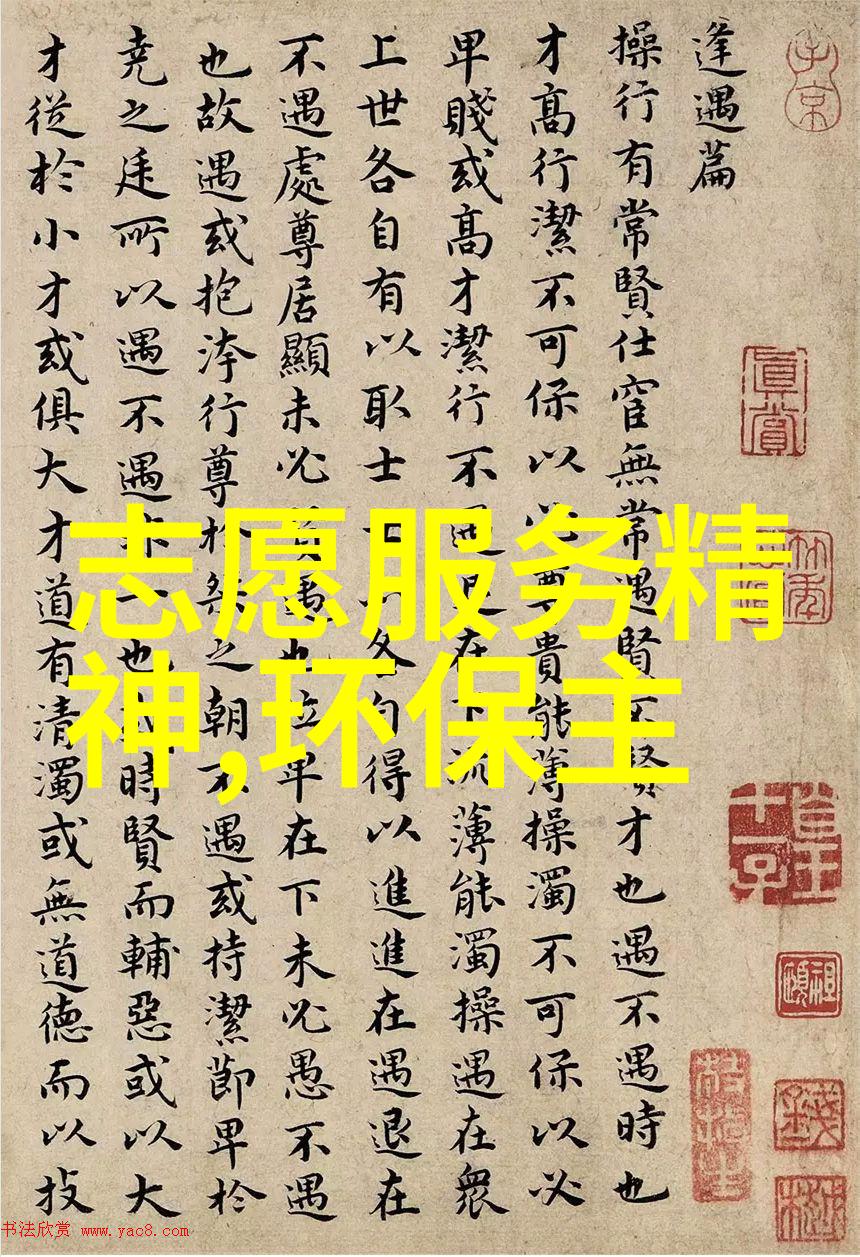 逢遇篇
操行有常賢仕宦無常遇賢不賢才也遇不遇時也
才高行潔不可保以必尊貴能薄操濁不可保以必
卑賤或高才潔行不遇退在下流薄能濁操遇在衆
上世各自有以取士士亦各自得以進進在遇退在
不遇處尊居顯未必賢遇也位卑在下未必愚不遇
也故遇或抱洿行尊於桀之朝不遇或持潔節卑於
堯之廷所以遇不遇非一也或時賢而輔惡或以大
才從於小才或俱大才道有清濁或無道德而以技
子京
眞賞
志愿服务精
神,环保主
书法欣赏 www.yac8.com